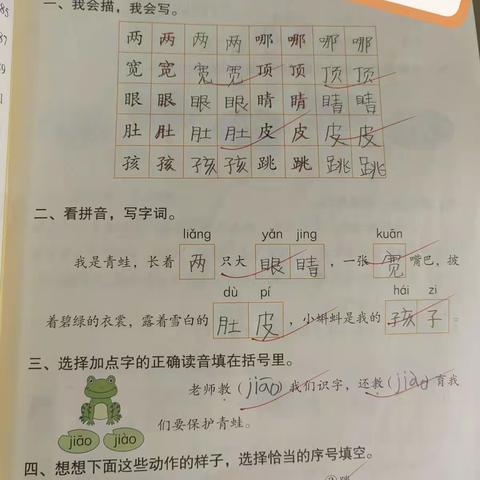 85
87
一、我会描，我会写。
两 两 两 两 哪 哪 哪 哪
宽 宽 宽 宽 顶 顶 顶 顶
眼 眼 眼 眼 睛 睛 睛 睛
肚 肚 肚 肚 皮 皮 皮 皮
孩 孩 孩 孩 跳 跳 跳 跳
二、看拼音，写字词。
liǎng yǎn jing kuān
我是青蛙，长着 两 只大 眼 睛 ，一张 宽 嘴巴，披
dù pí hái zi
着碧绿的衣裳，露着雪白的 肚 皮 ，小蝌蚪是我的 孩 子 。
三、选择加点字的正确读音填在括号里。
老师教（jiāo）我们识字，还教（jiào）育我
jiāo jiào 们要保护青蛙。
四、想想下面这些动作的样子，选择恰当的序号填空。